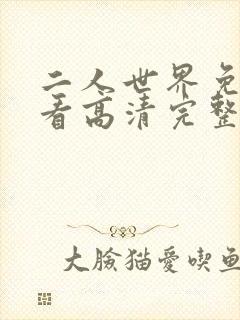 二人世界免
看高清完整
大臉猫愛喫魚